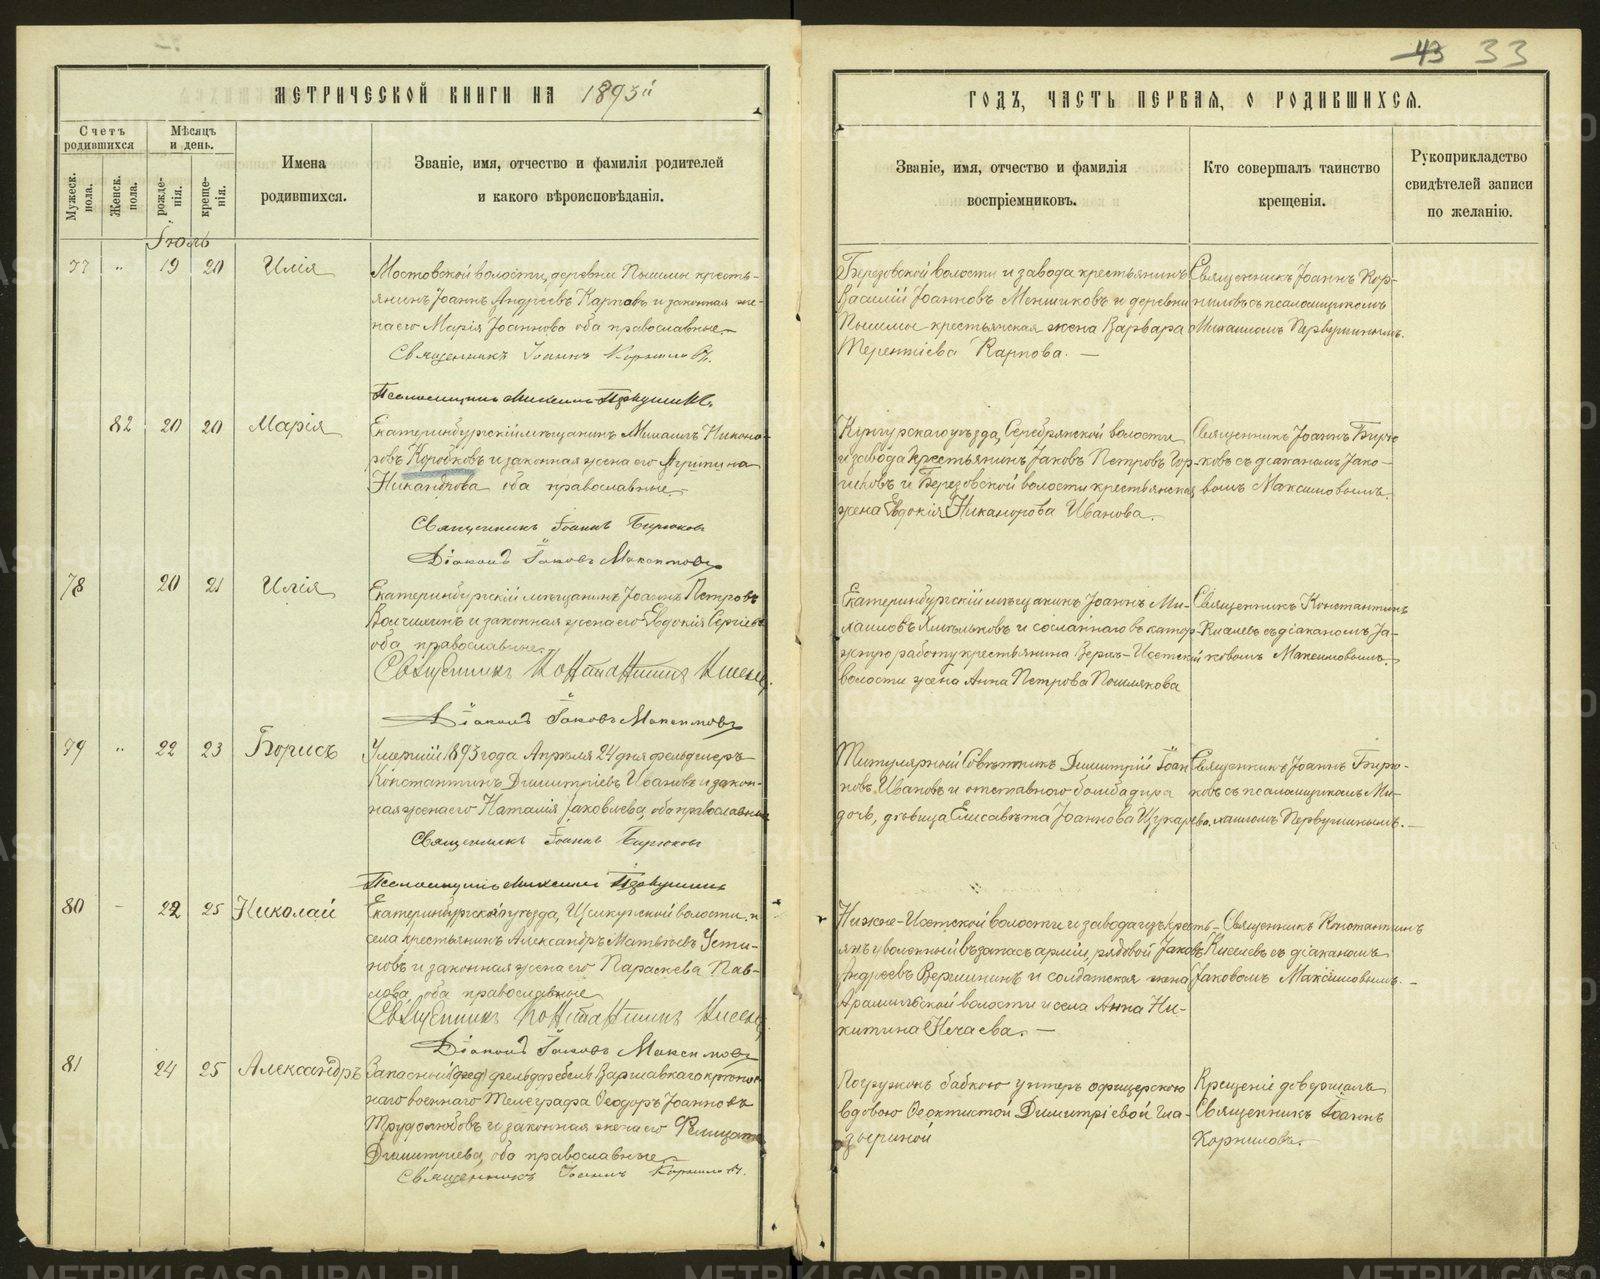 43 33
МЕТРИЧЕСКОЙ КНИГИ НА 1893й
ГОДЪ, ЧАСТЬ ПЕРВАЯ, О РОДИВШИХСЯ.
Счетъ родившихся
Мужеск. пола.
Женск. пола.
Мѣсяцъ и день.
рожде-нія.
креще-нія.
Имена
родившихся.
Званіе, имя, отчество и фамилія родителей
и какого вѣроисповѣданія.
Званіе, имя, отчество и фамилія
воспріемниковъ.
Кто совершалъ таинство
крещенія.
Рукоприкладство
свидѣтелей записи
по желанію.
Іюль
77 " 19 20 Илія
Мостовской волости, деревни Пышмы кресть-
янинъ Іоаннъ Андреевъ Карповъ и законная же-
на его Марія Іоаннова оба православные
Священникъ Іоаннъ Корниловъ.
Псаломщикъ Михаилъ Первушинъ.
Березовской волости и завода крестьянинъ
Василій Іоанновъ Меншиковъ и деревни
Пышмы крестьянская жена Варвара
Терентіева Карпова. —
Священникъ Іоаннъ Кор-
ниловъ съ псаломщикомъ
Михаиломъ Первушинымъ.
82 20 20 Марія
Екатеринбургскій мѣщанинъ Михаилъ Никано-
ровъ Коробковъ и законная жена его Агрипина
Никандрова оба православные
Священникъ Іоаннъ Бирюковъ
Діаконъ Іаковъ Максимовъ
Кунгурскаго уѣзда, Серебрянской волости
и завода крестьянинъ Іаковъ Петровъ Гор-
и Березовской волости крестьянская
жена Евдокія Никанорова Иванова.
Священникъ Іоаннъ Бирю-
ковъ съ діакономъ Іако-
вомъ Максимовымъ.
78 20 21 Илія
Екатеринбургскій мѣщанинъ Іоаннъ Петровъ
и законная жена его Евдокія Сергіева
оба православные.
Священникъ Константинъ Киселевъ
Діаконъ Іаковъ Максимовъ
Екатеринбургскій мѣщанинъ Іоаннъ Ми-
хаиловъ Хмѣльковъ и сосланнаго въ катор-
жную работу крестьянина Верхъ-Исетской
волости жена Анна Петрова Пошлякова
Священникъ Константинъ
Киселевъ съ діакономъ Іа-
ковомъ Максимовымъ.
79 " 22 23 Борисъ
Умершій 1893 года Апрѣля 24 дня фельдшеръ
Константинъ Димитріевъ Ивановъ и закон-
ная жена его Наталія Іаковлева, оба православные
Священникъ Іоаннъ Бирюковъ
Псаломщикъ Михаилъ Первушинъ
Титулярный Совѣтникъ Димитрій Іоан-
новъ Ивановъ и отставного бомбадира
дочь, дѣвица Елисавета Іоаннова Щукарева.
Священникъ Іоаннъ Бирю-
ковъ съ псаломщикомъ Ми-
хаиломъ Первушинымъ. —
80 – 22 25 Николай
Екатеринбургскаго уѣзда, Щелкунской волости и
села крестьянинъ Александръ Матвѣевъ Усти-
новъ и законная жена его Параскева Пав-
лова, оба православные
Священникъ Константинъ Киселевъ
Діаконъ Іаковъ Максимовъ
Нижне-Исетской волости и завода изъ кресть-
янъ уволенный въ запасъ арміи, рядовой Іаковъ
Андреевъ Вершининъ и солдатская жена
Арамильской волости и села Анна Ни-
китина Нечаева. —
Священникъ Константинъ
Киселевъ съ діакономъ
Іаковомъ Максимовымъ. —
81 24 25 Александръ
Запасный (фед) фельдфебель Варшавкаго крѣпост-
наго военнаго Телеграфа Ѳеодоръ Іоанновъ
Трудолюбовъ и законная жена его Фелицата
Димитріева, оба православные
Священникъ Іоаннъ Корниловъ.
Погружонъ бабкою унтеръ офицерскою
вдовою Ѳеоктистой Димитріевой Гла-
зыриной
Крещеніе довершалъ
Священникъ Іоаннъ
Корниловъ.
METRIKI.GASO-URAL.RU